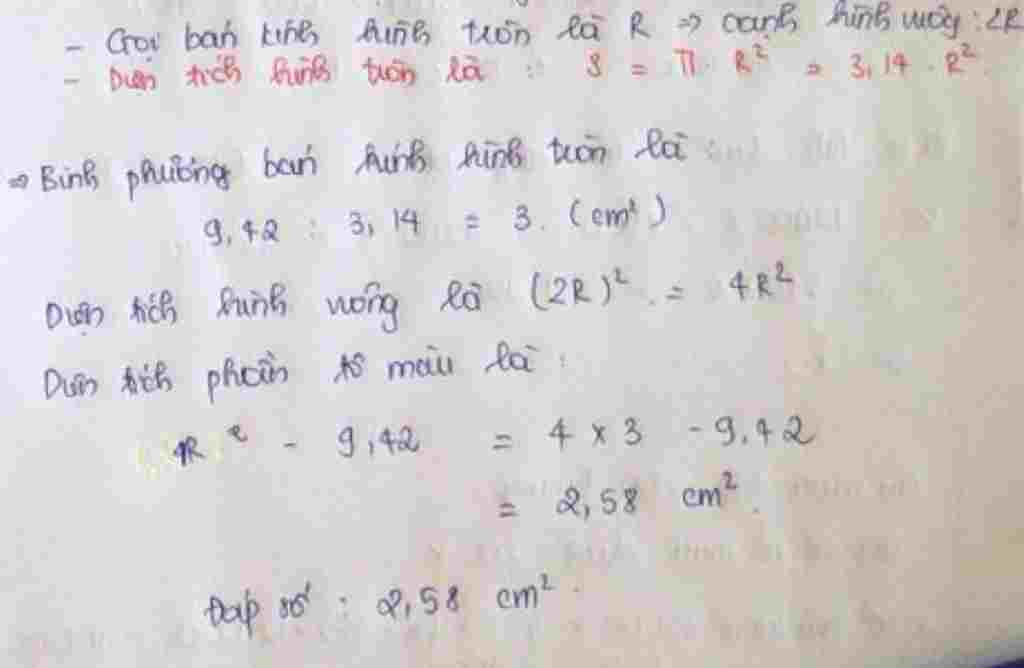 - Gọi bán kính hình tròn là R => cạnh hình vuông: 2R
- Diện tích hình tròn là : S = π . R² = 3,14 . R².
=> Bình phương bán kính hình tròn là :
9,42 : 3,14 = 3. (cm²)
Diện tích hình vuông là (2R)² = 4R².
Diện tích phần tô màu là :
4R² - 9,42 = 4 x 3 - 9,42
= 2,58 cm².
Đáp số : 2,58 cm².